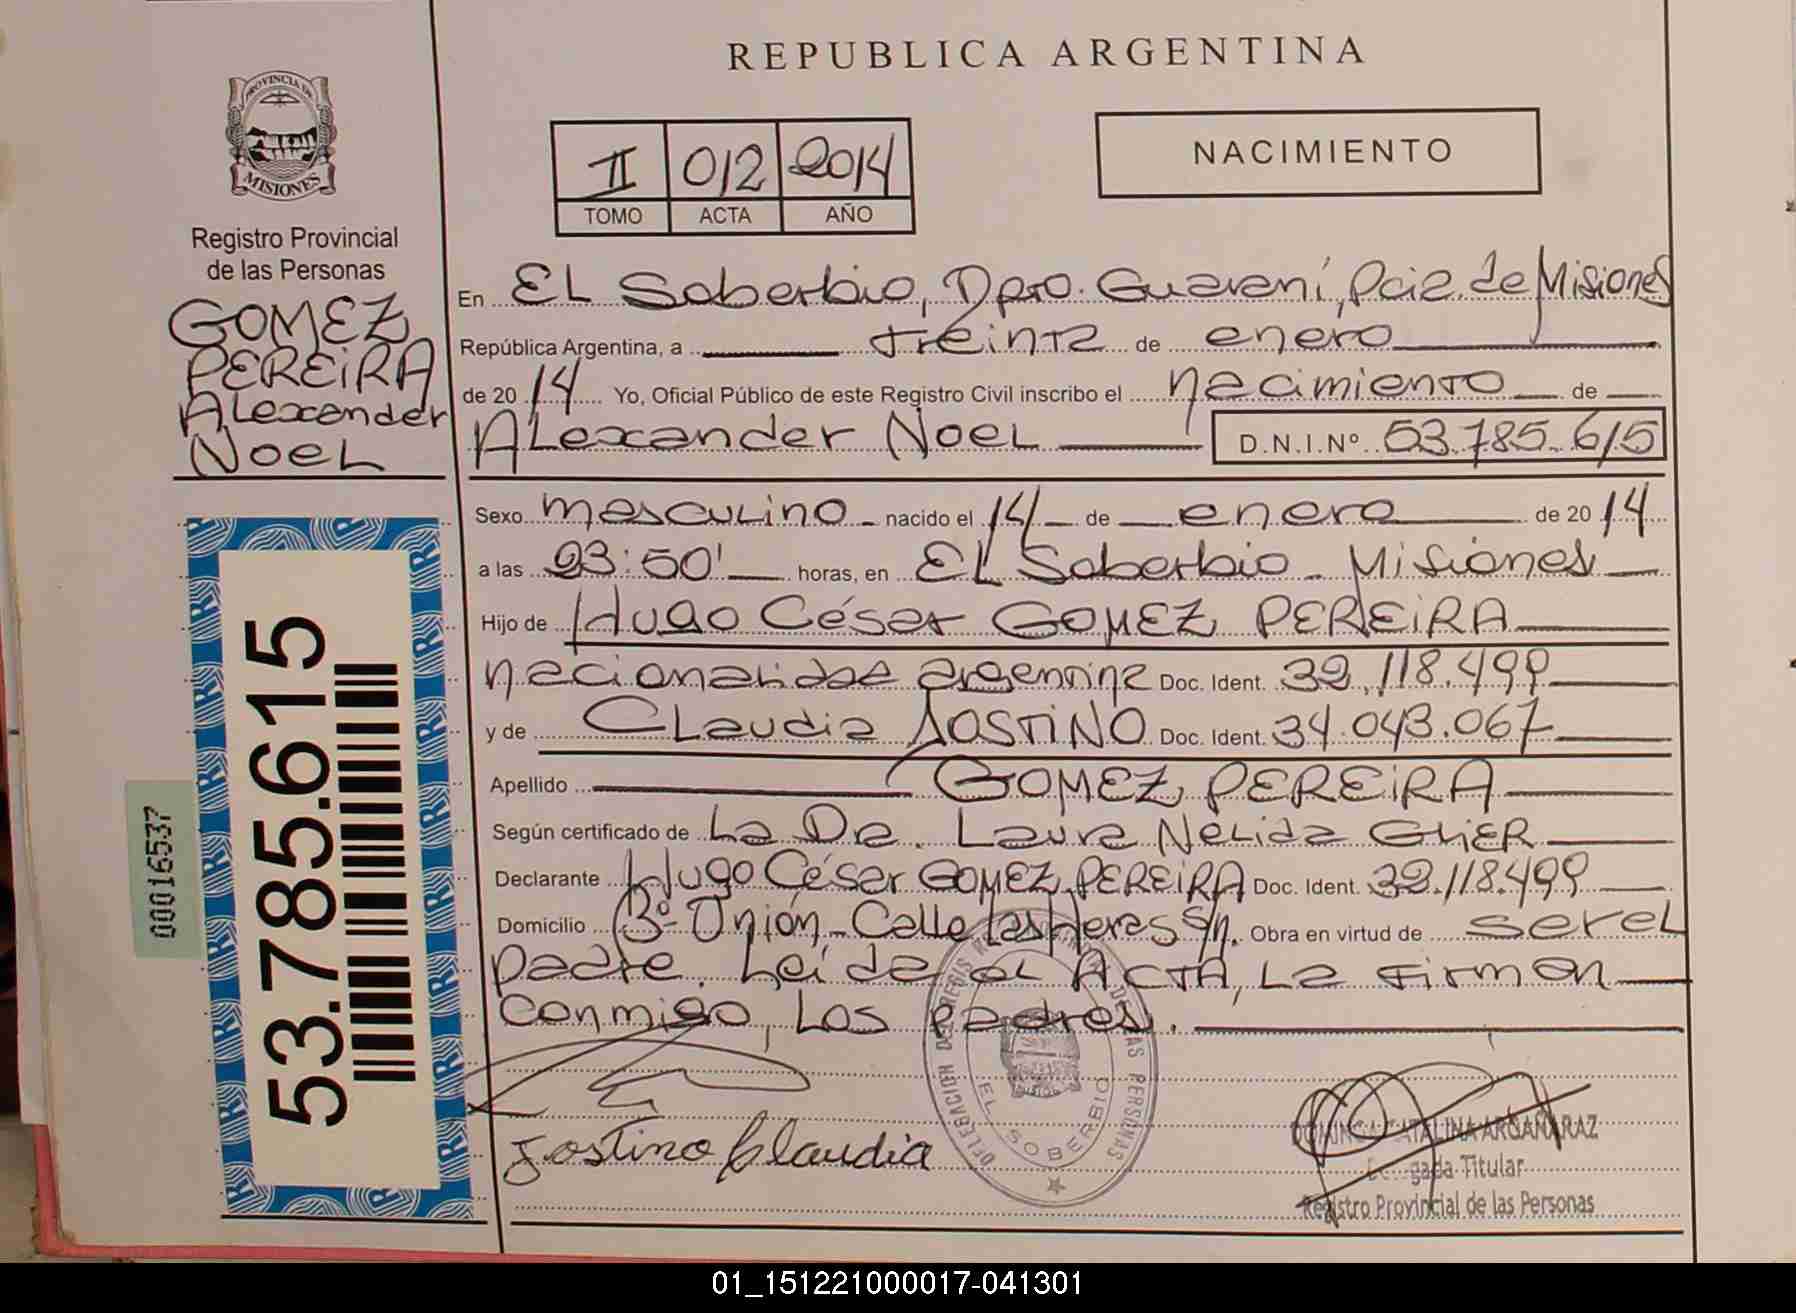 REPUBLICA ARGENTINA
PROVINCIA DE
MISIONES
Registro Provincial
de las Personas
GOMEZ
PEREiRA
ALexander
NoeL
II 012 2014
TOMO ACTA AÑO
NACIMIENTO
En EL Soberbio, Dpto. Guaraní, Pcia. de Misiones
República Argentina, a treinta de enero
de 2014 Yo, Oficial Público de este Registro Civil inscribo el nacimiento de
ALexander NoeL D.N.I.Nº 53.785.615
Sexo masculino nacido el 14 de enero de 2014
a las 23:50' horas, en EL Soberbio - Misiones
Hijo de Hugo César GOMEZ PEREiRA
nacionalidad argentina Doc. Ident. 32.118.499
y de CLaudia JOSTiNO Doc. Ident. 34.043.067
Apellido GOMEZ PEREiRA
Según certificado de La Dra. Laura NéLida GLIER
Declarante Hugo César GOMEZ PEREiRA Doc. Ident. 32.118.499
Domicilio Bº Unión - Calle Las Heras S/n. Obra en virtud de ser eL
padre. Leída eL ACTA, La firman
conmigo, Los padres.
Jostino Claudia
DELEGACION DEL REGISTRO DE LAS PERSONAS
EL SOBERBIO
DOMINGA CATALINA ARGAÑARAZ
Delegada Titular
Registro Provincial de las Personas
53.785.615
00016537
01_151221000017-041301